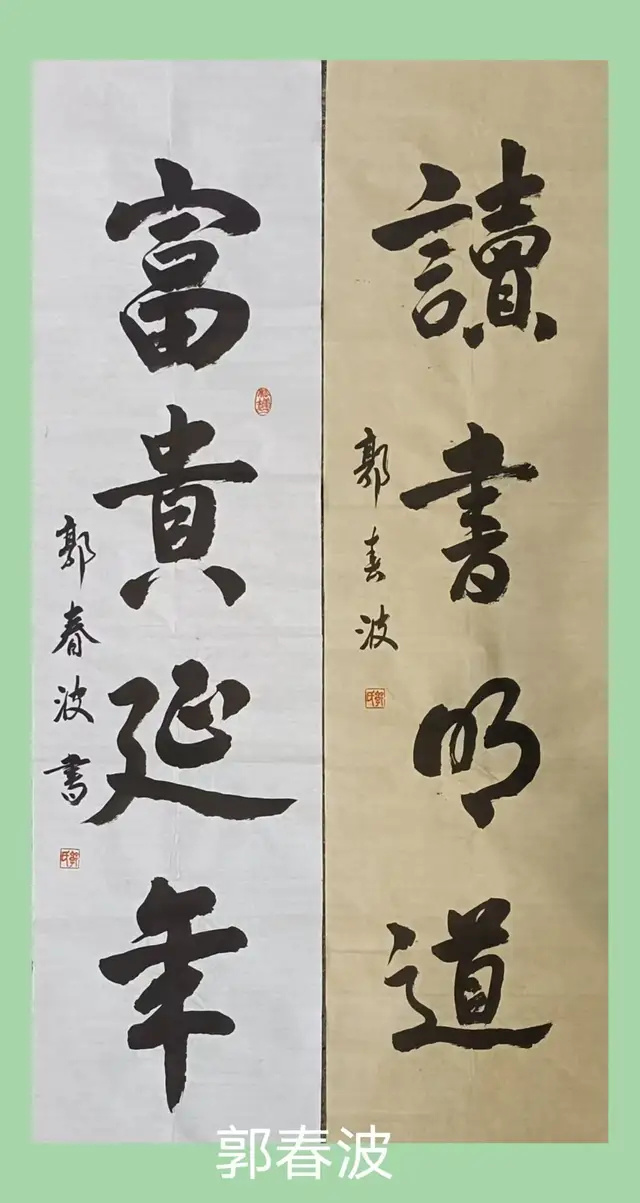 讀書明道
郭春波
富貴延年
郭春波書
郭春波